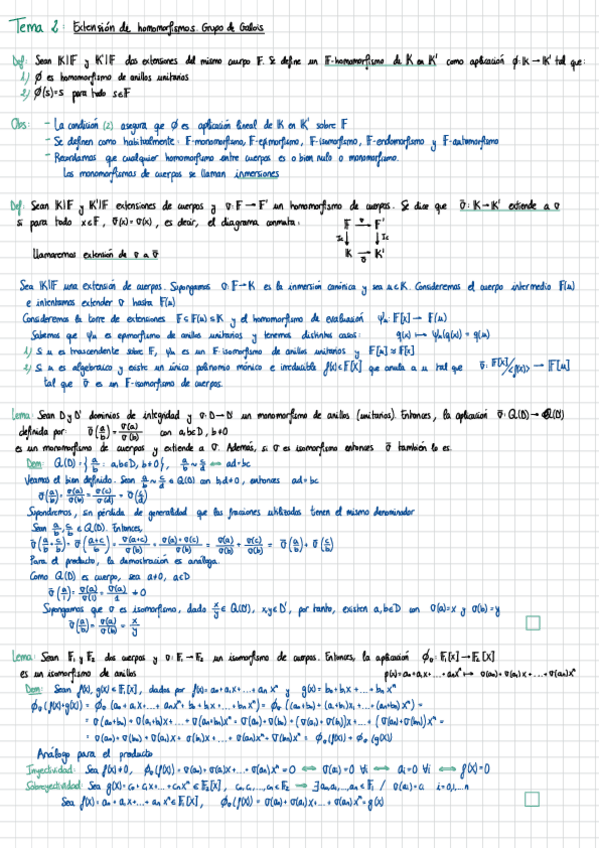 Tema 2: Extensión de homomorfismos. Grupo de Galois
Def: Sean K|F y K'|F dos extensiones del mismo cuerpo F. Se define un F-homomorfismo de K en K' como aplicación ϕ: K → K' tal que:
1) ϕ es homomorfismo de anillos unitarios
2) ϕ(s)=s para todo s∈F
Obs: - La condición (2) asegura que ϕ es aplicación lineal de K en K' sobre F
- Se definen como habitualmente: F-monomorfismo, F-epimorfismo, F-isomorfismo, F-endomorfismo y F-automorfismo
- Recordamos que cualquier homomorfismo entre cuerpos es o bien nulo o monomorfismo.
Los monomorfismos de cuerpos se llaman inmersiones
Def: Sean K|F y K'|F' extensiones de cuerpos y σ: F → F' un homomorfismo de cuerpos. Se dice que σ̄: K → K' extiende a σ
si para todo x∈F, σ̄(x)=σ(x), es decir, el diagrama conmuta:
F σ→ F'
K σ̄→ K'
Llamaremos extensión de σ a σ̄
Sea K|F una extensión de cuerpos. Supongamos σ: F → K es la inmersión canónica y sea u∈K. Consideremos el cuerpo intermedio F(u)
e intentamos extender σ hasta F(u)
Consideremos la torre de extensiones F ≤ F(u) ≤ K y el homomorfismo de evaluación ψu: F[x] → F(u)
Sabemos que ψu es epimorfismo de anillos unitarios y tenemos distintos casos: q(x) ↦ ψu(q(x)) = q(u)
1) Si u es trascendente sobre F, ψu es un F-isomorfismo de anillos unitarios y F[u] ≅ F[x]
2) Si u es algebraico y existe un único polinomio mónico e irreducible f(x)∈F[x] que anula a u tal que σ̄: F[x]/<f(x)> → F[u]
tal que σ̄ es un F-isomorfismo de cuerpos.
Lema: Sean D y D' dominios de integridad y σ: D → D' un monomorfismo de anillos (unitarios). Entonces, la aplicación σ̄: Q(D) → Q(D')
definida por: σ̄(a/b) = σ(a)/σ(b) con a,b∈D, b≠0
es un monomorfismo de cuerpos y extiende a σ. Además, si σ es isomorfismo entonces σ̄ también lo es.
Dem: Q(D) = { a/b : a,b∈D, b≠0 }, a/b ~ c/d ⟺ ad=bc
Veamos el bien definido. Sean a/b ~ c/d ∈ Q(D) con b,d≠0, entonces ad=bc
σ̄(a/b) = σ(a)/σ(b) = σ(c)/σ(d) = σ̄(c/d)
Supondremos, sin pérdida de generalidad que las fracciones utilizadas tienen el mismo denominador
Sean a/b, c/b ∈ Q(D). Entonces,
σ̄(a/b + c/b) = σ̄((a+c)/b) = σ(a+c)/σ(b) = (σ(a)+σ(c))/σ(b) = σ(a)/σ(b) + σ(c)/σ(b) = σ̄(a/b) + σ̄(c/b)
Para el producto, la demostración es análoga.
Como Q(D) es cuerpo, sea a≠0, a∈D
σ̄(a/1) = σ(a)/σ(1) = σ(a)/1 ≠ 0
Supongamos que σ es isomorfismo, dado x/y ∈ Q(D'), x,y∈D', por tanto, existen a,b∈D con σ(a)=x y σ(b)=y
σ̄(a/b) = σ(a)/σ(b) = x/y
Lema: Sean F₁ y F₂ dos cuerpos y σ: F₁ → F₂ un isomorfismo de cuerpos. Entonces, la aplicación ϕσ: F₁[x] → F₂[x]
es un isomorfismo de anillos p(x)=a₀+a₁x+...+aₙxⁿ ↦ σ(a₀)+σ(a₁)x+...+σ(aₙ)xⁿ
Dem: Sean f(x), g(x)∈F₁[x], dados por f(x)=a₀+a₁x+...+aₙxⁿ y g(x)=b₀+b₁x+...+bₙxⁿ
ϕσ(f(x)+g(x)) = ϕσ(a₀+a₁x+...+aₙxⁿ+b₀+b₁x+...+bₙxⁿ) = ϕσ((a₀+b₀)+(a₁+b₁)x+...+(aₙ+bₙ)xⁿ) =
= σ(a₀+b₀)+σ(a₁+b₁)x+...+σ(aₙ+bₙ)xⁿ = σ(a₀)+σ(b₀)+(σ(a₁)+σ(b₁))x+...+(σ(aₙ)+σ(bₙ))xⁿ =
= σ(a₀)+σ(b₀)+σ(a₁)x+σ(b₁)x+...+σ(aₙ)xⁿ+σ(bₙ)xⁿ = ϕσ(f(x))+ϕσ(g(x))
Análogo para el producto
Inyectividad: Sea f(x)≠0, ϕσ(f(x)) = σ(a₀)+σ(a₁)x+...+σ(aₙ)xⁿ=0 ⟺ σ(aᵢ)=0 ∀i ⟺ aᵢ=0 ∀i ⟺ f(x)=0
Sobreyectividad: Sea g(x)=c₀+c₁x+...+cₙxⁿ∈F₂[x], c₀,c₁,...,cₙ∈F₂ → ∃a₀,a₁,...,aₙ∈F₁ / σ(aᵢ)=cᵢ i=0,1,...n
Sea f(x)=a₀+a₁x+...+aₙxⁿ∈F₁[x], ϕσ(f(x)) = σ(a₀)+σ(a₁)x+...+σ(aₙ)xⁿ=g(x)